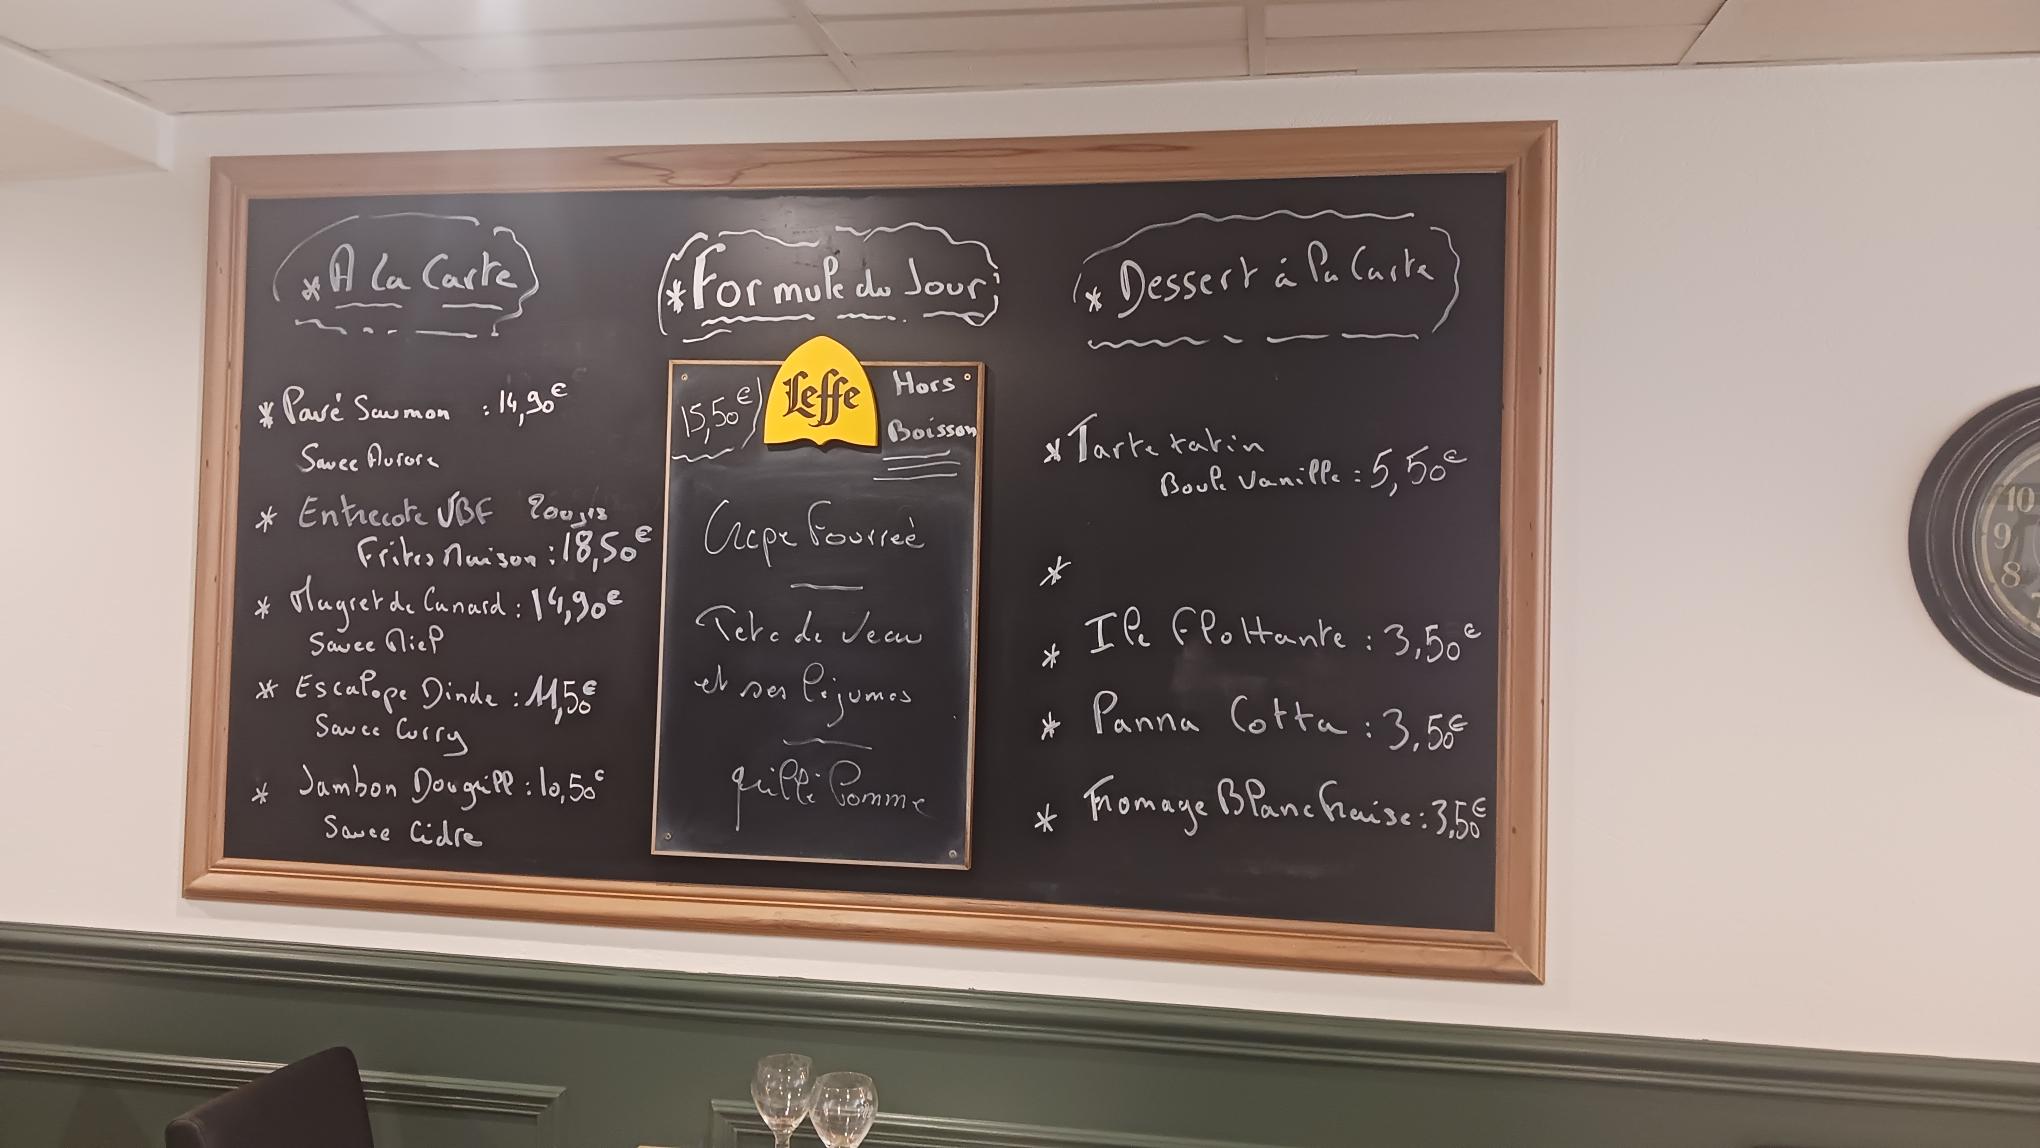 * A la Carte
* Pavé Saumon : 14,90€
Sauce Aurore
* Entrecote VBF 200grs
Frites Maison : 18,50€
* Magret de Canard : 14,90€
Sauce Miel
* Escalope Dinde : 11,50€
Sauce Curry
* Jambon Dougrill : 10,50€
Sauce Cidre
* Formule du Jour
15,50€
Leffe
Hors
Boisson
Crepe Fourreé
Tete de Veau
et ses légumes
grillé Pomme
* Dessert à la Carte
* Tarte tatin
Boule Vanille : 5,50€
*
* Ile Flottante : 3,50€
* Panna Cotta : 3,50€
* Fromage Blanc fraise : 3,50€
10
9
8